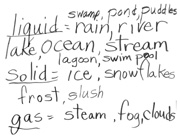 swamp, pond, puddles
liquid = rain, river
lake, ocean, stream
lagoon, swim pool
solid = ice, snowflakes
frost, slush
gas = steam, fog, clouds